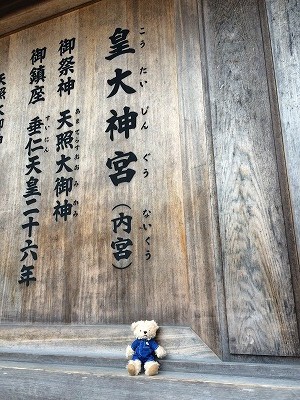 皇大神宮（内宮）
こうたいじんぐう ないくう
御祭神 天照大御神
あまてらすおおみかみ
御鎮座 垂仁天皇二十六年
すいにん
天照大御